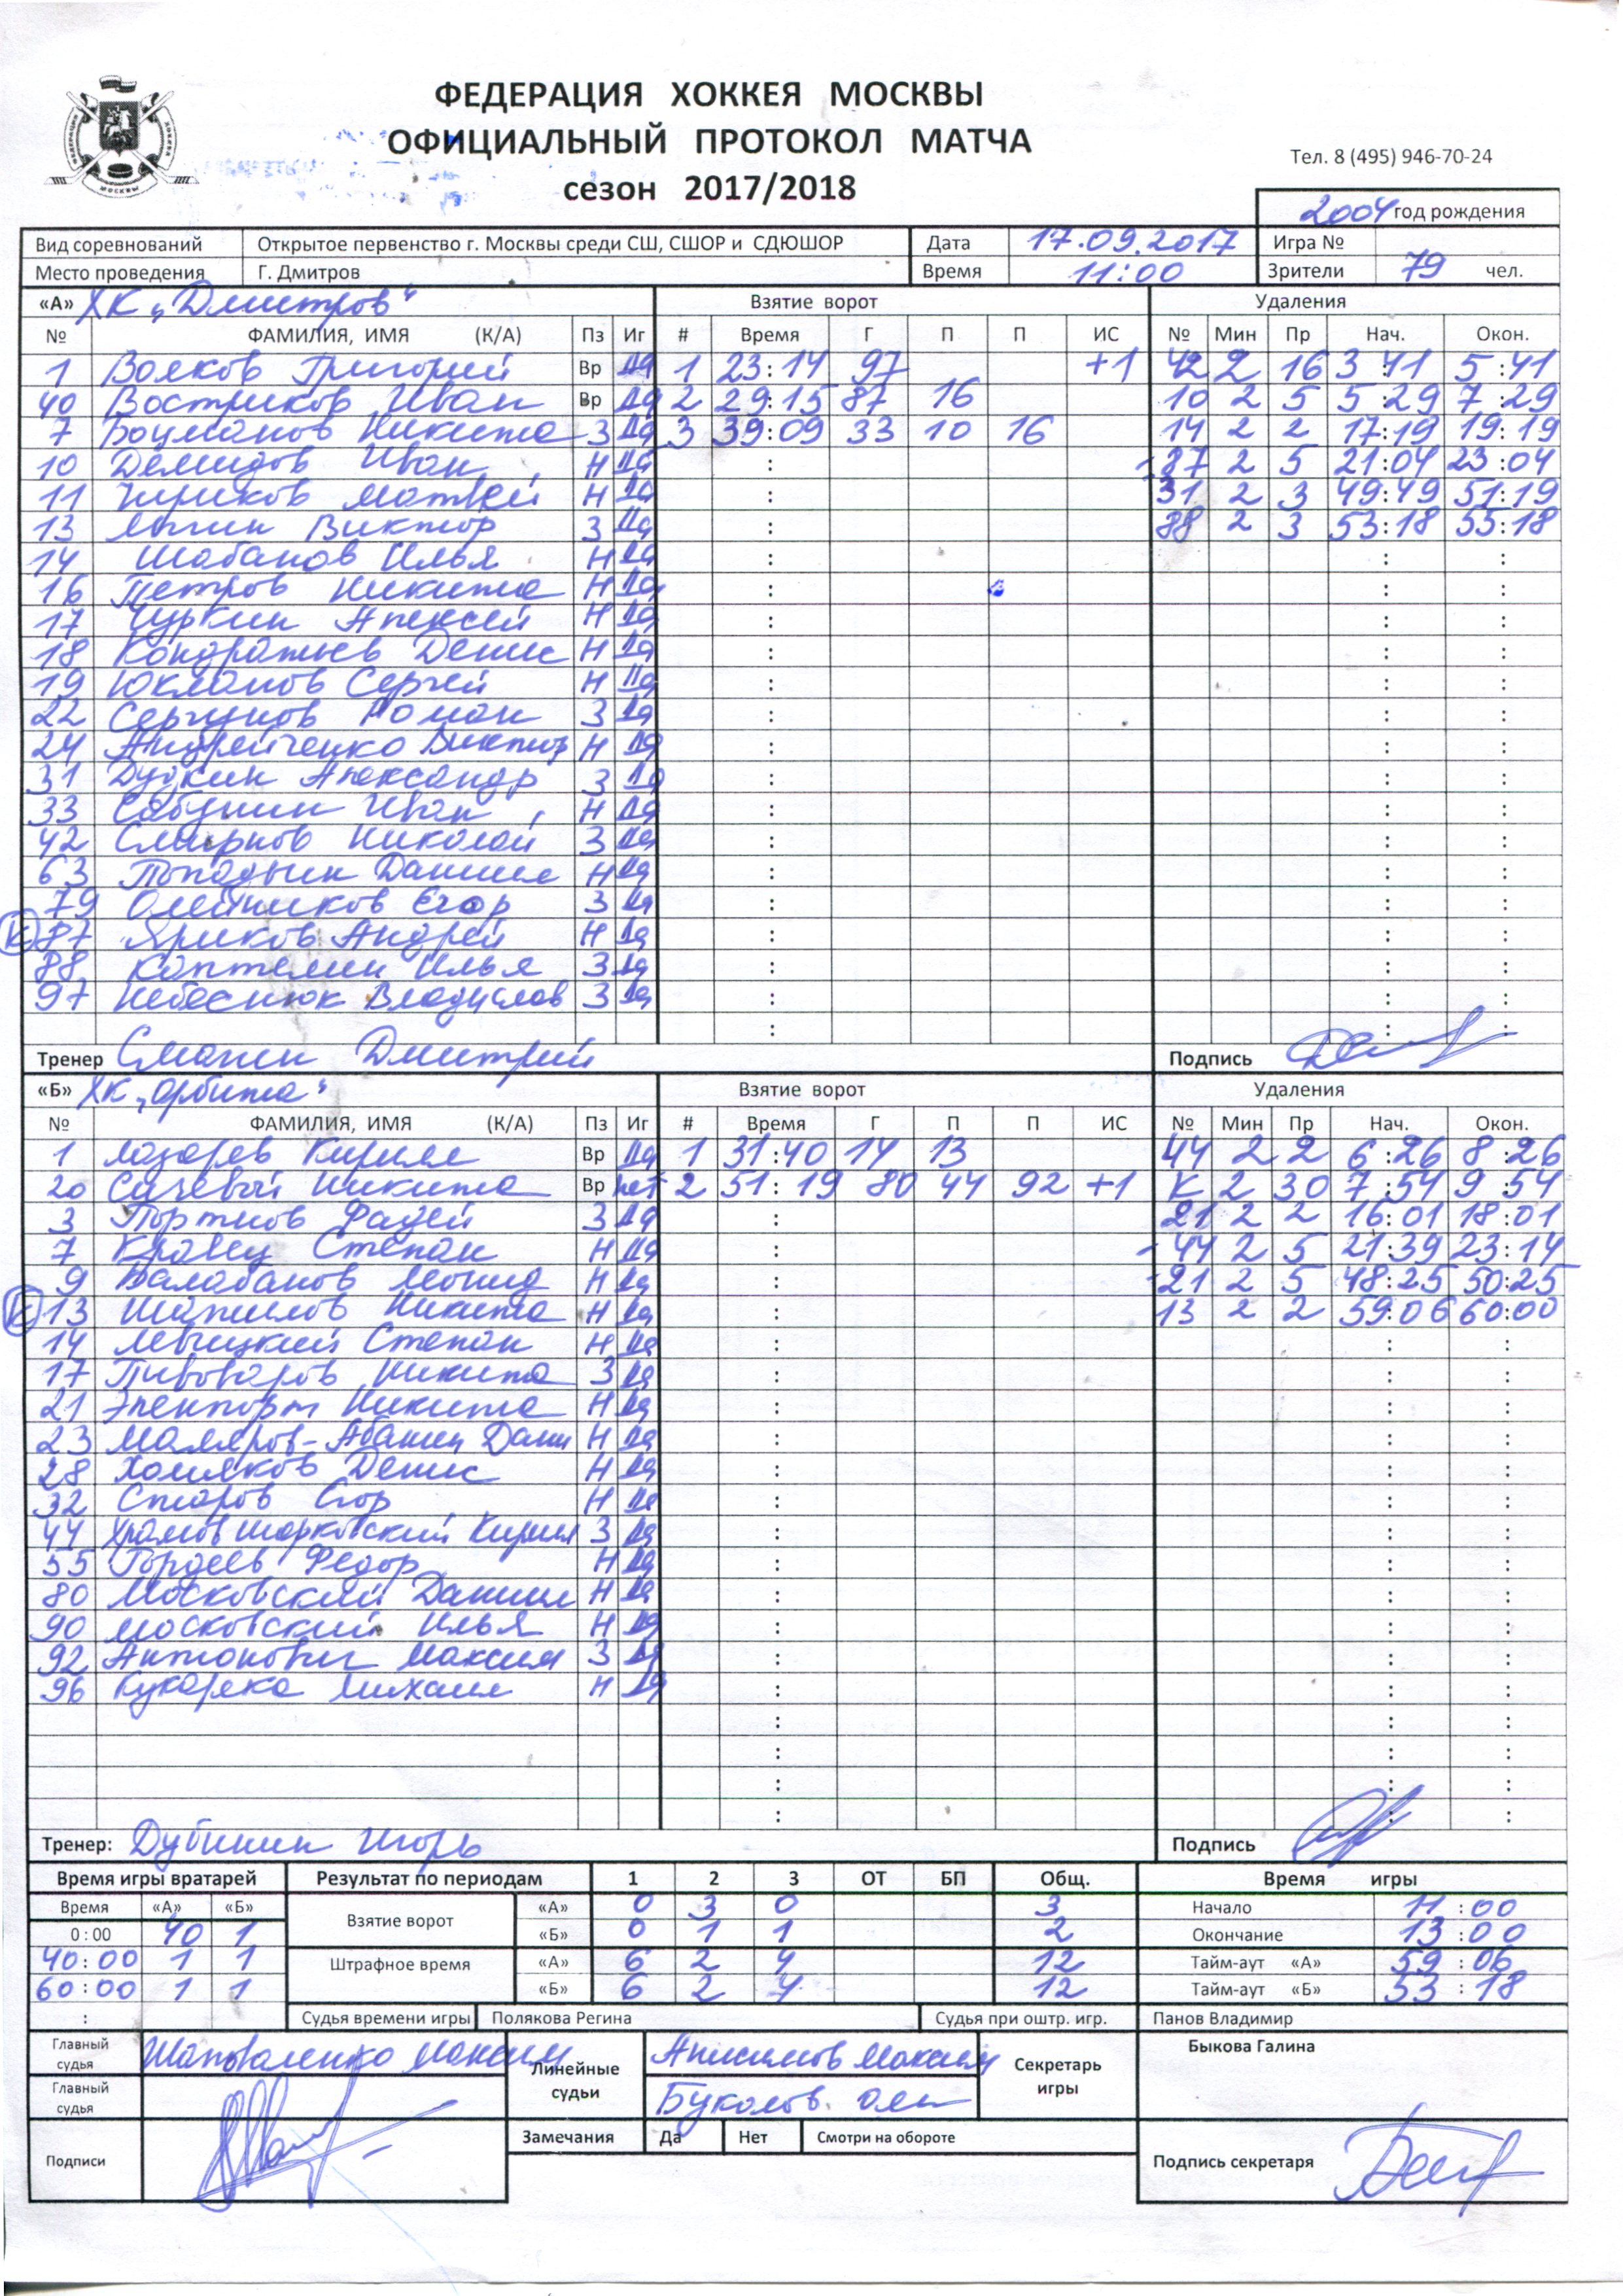 ФЕДЕРАЦИЯ ХОККЕЯ МОСКВЫ
ОФИЦИАЛЬНЫЙ ПРОТОКОЛ МАТЧА
Тел. 8 (495) 946-70-24
сезон 2017/2018
2004 год рождения
Вид соревнований Открытое первенство г. Москвы среди СШ, СШОР и СДЮШОР Дата 17.09.2017 Игра №
Место проведения Г. Дмитров Время 11:00 Зрители 79 чел.
«А» ХК „Дмитров“ Взятие ворот Удаления
№ ФАМИЛИЯ, ИМЯ (К/А) Пз Иг # Время Г П П ИС № Мин Пр Нач. Окон.
1 Волков Григорий Вр да 1 23:14 97 +1 42 2 16 3:41 5:41
40 Востриков Иван Вр да 2 29:15 87 16 10 2 5 5:29 7:29
7 Боцманов Никита З да 3 39:09 33 10 16 14 2 2 17:19 19:19
10 Демидов Иван Н да : 87 2 5 21:04 23:04
11 Чириков Матвей Н да : 31 2 3 49:49 51:19
13 Виктор З да : 88 2 3 53:18 55:18
14 Шабанов Илья Н да : : :
16 Петров Никита Н да : : :
17 Чуркин Алексей Н да : : :
18 Кондратьев Денис Н да : : :
19 Юкланов Сергей Н да : : :
22 Сергунов Роман З да : : :
24 Андрейченко Виктор Н да : : :
31 Дудкин Александр З да : : :
33 Сабушин Иван Н да : : :
42 Смирнов Николай З да : : :
63 Даниил Н да : : :
79 Олейников Егор З да : : :
К 87 Яриков Андрей Н да : : :
88 Коптелин Илья З да : : :
97 Небеснюк Владислав З да : : :
: : :
Тренер Дмитрий Подпись
«Б» ХК „Орбита“ Взятие ворот Удаления
№ ФАМИЛИЯ, ИМЯ (К/А) Пз Иг # Время Г П П ИС № Мин Пр Нач. Окон.
1 Лазарев Кирилл Вр да 1 31:40 14 13 44 2 2 6:26 8:26
20 Сычевой Никита Вр нет 2 51:19 80 44 92 +1 К 2 30 7:54 9:54
3 Портнов Фадей З да : 21 2 2 16:01 18:01
7 Кравец Степан Н да : 44 2 5 21:39 23:14
9 Балабанов Леонид Н да : 21 2 5 48:25 50:25
К 13 Шапилов Никита Н да : 13 2 2 59:06 60:00
14 Левицкий Степан Н да : : :
17 Пивоваров Никита З да : : :
21 Эпенпорт Никита Н да : : :
23 Маляров- Дани Н да : : :
28 Хомяков Денис Н да : : :
32 Старов Егор Н да : : :
44 Храмов Шарковский Кирилл З да : : :
55 Гордеев Федор Н да : : :
80 Московский Даниил Н да : : :
90 Московский Илья Н да : : :
92 Антонович Максим З да : : :
96 Кукарека Михаил Н да : : :
: : :
: : :
: : :
: : :
Тренер: Дубинин Игорь Подпись
Время игры вратарей Результат по периодам 1 2 3 ОТ БП Общ. Время игры
Время «А» «Б» Взятие ворот «А» 0 3 0 3 Начало 11:00
0:00 40 1 «Б» 0 1 1 2 Окончание 13:00
40:00 1 1 Штрафное время «А» 6 2 4 12 Тайм-аут «А» 59:06
60:00 1 1 «Б» 6 2 4 12 Тайм-аут «Б» 53:18
: Судья времени игры Полякова Регина Судья при оштр. игр. Панов Владимир
Главный судья Шаповаленко Максим Линейные судьи Анисимов Максим Секретарь игры Быкова Галина
Главный судья Буколов
Подписи Замечания Да Нет Смотри на обороте Подпись секретаря